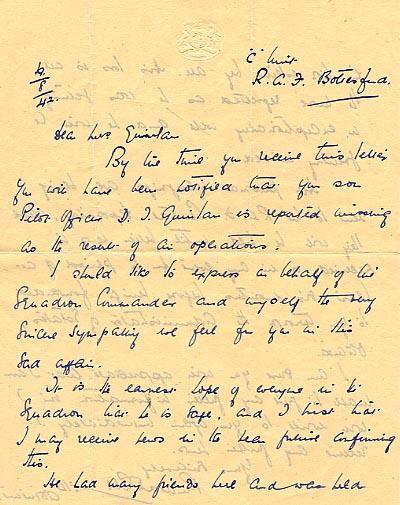 "C" Unit
R.A.F. Bottesford.
4/8/42.
Dear Mrs Quinlan
By the time you receive this letter
you will have been notified that your son
Pilot Officer D. J. Quinlan is reported missing
as the result of air operations.
I should like to express on behalf of the
Squadron Commander and myself the very
sincere sympathy we feel for you in this
sad affair.
It is the earnest hope of everyone in the
Squadron that he is safe, and I trust that
I may receive news in the near future confirming
this.
He had many friends here and was held